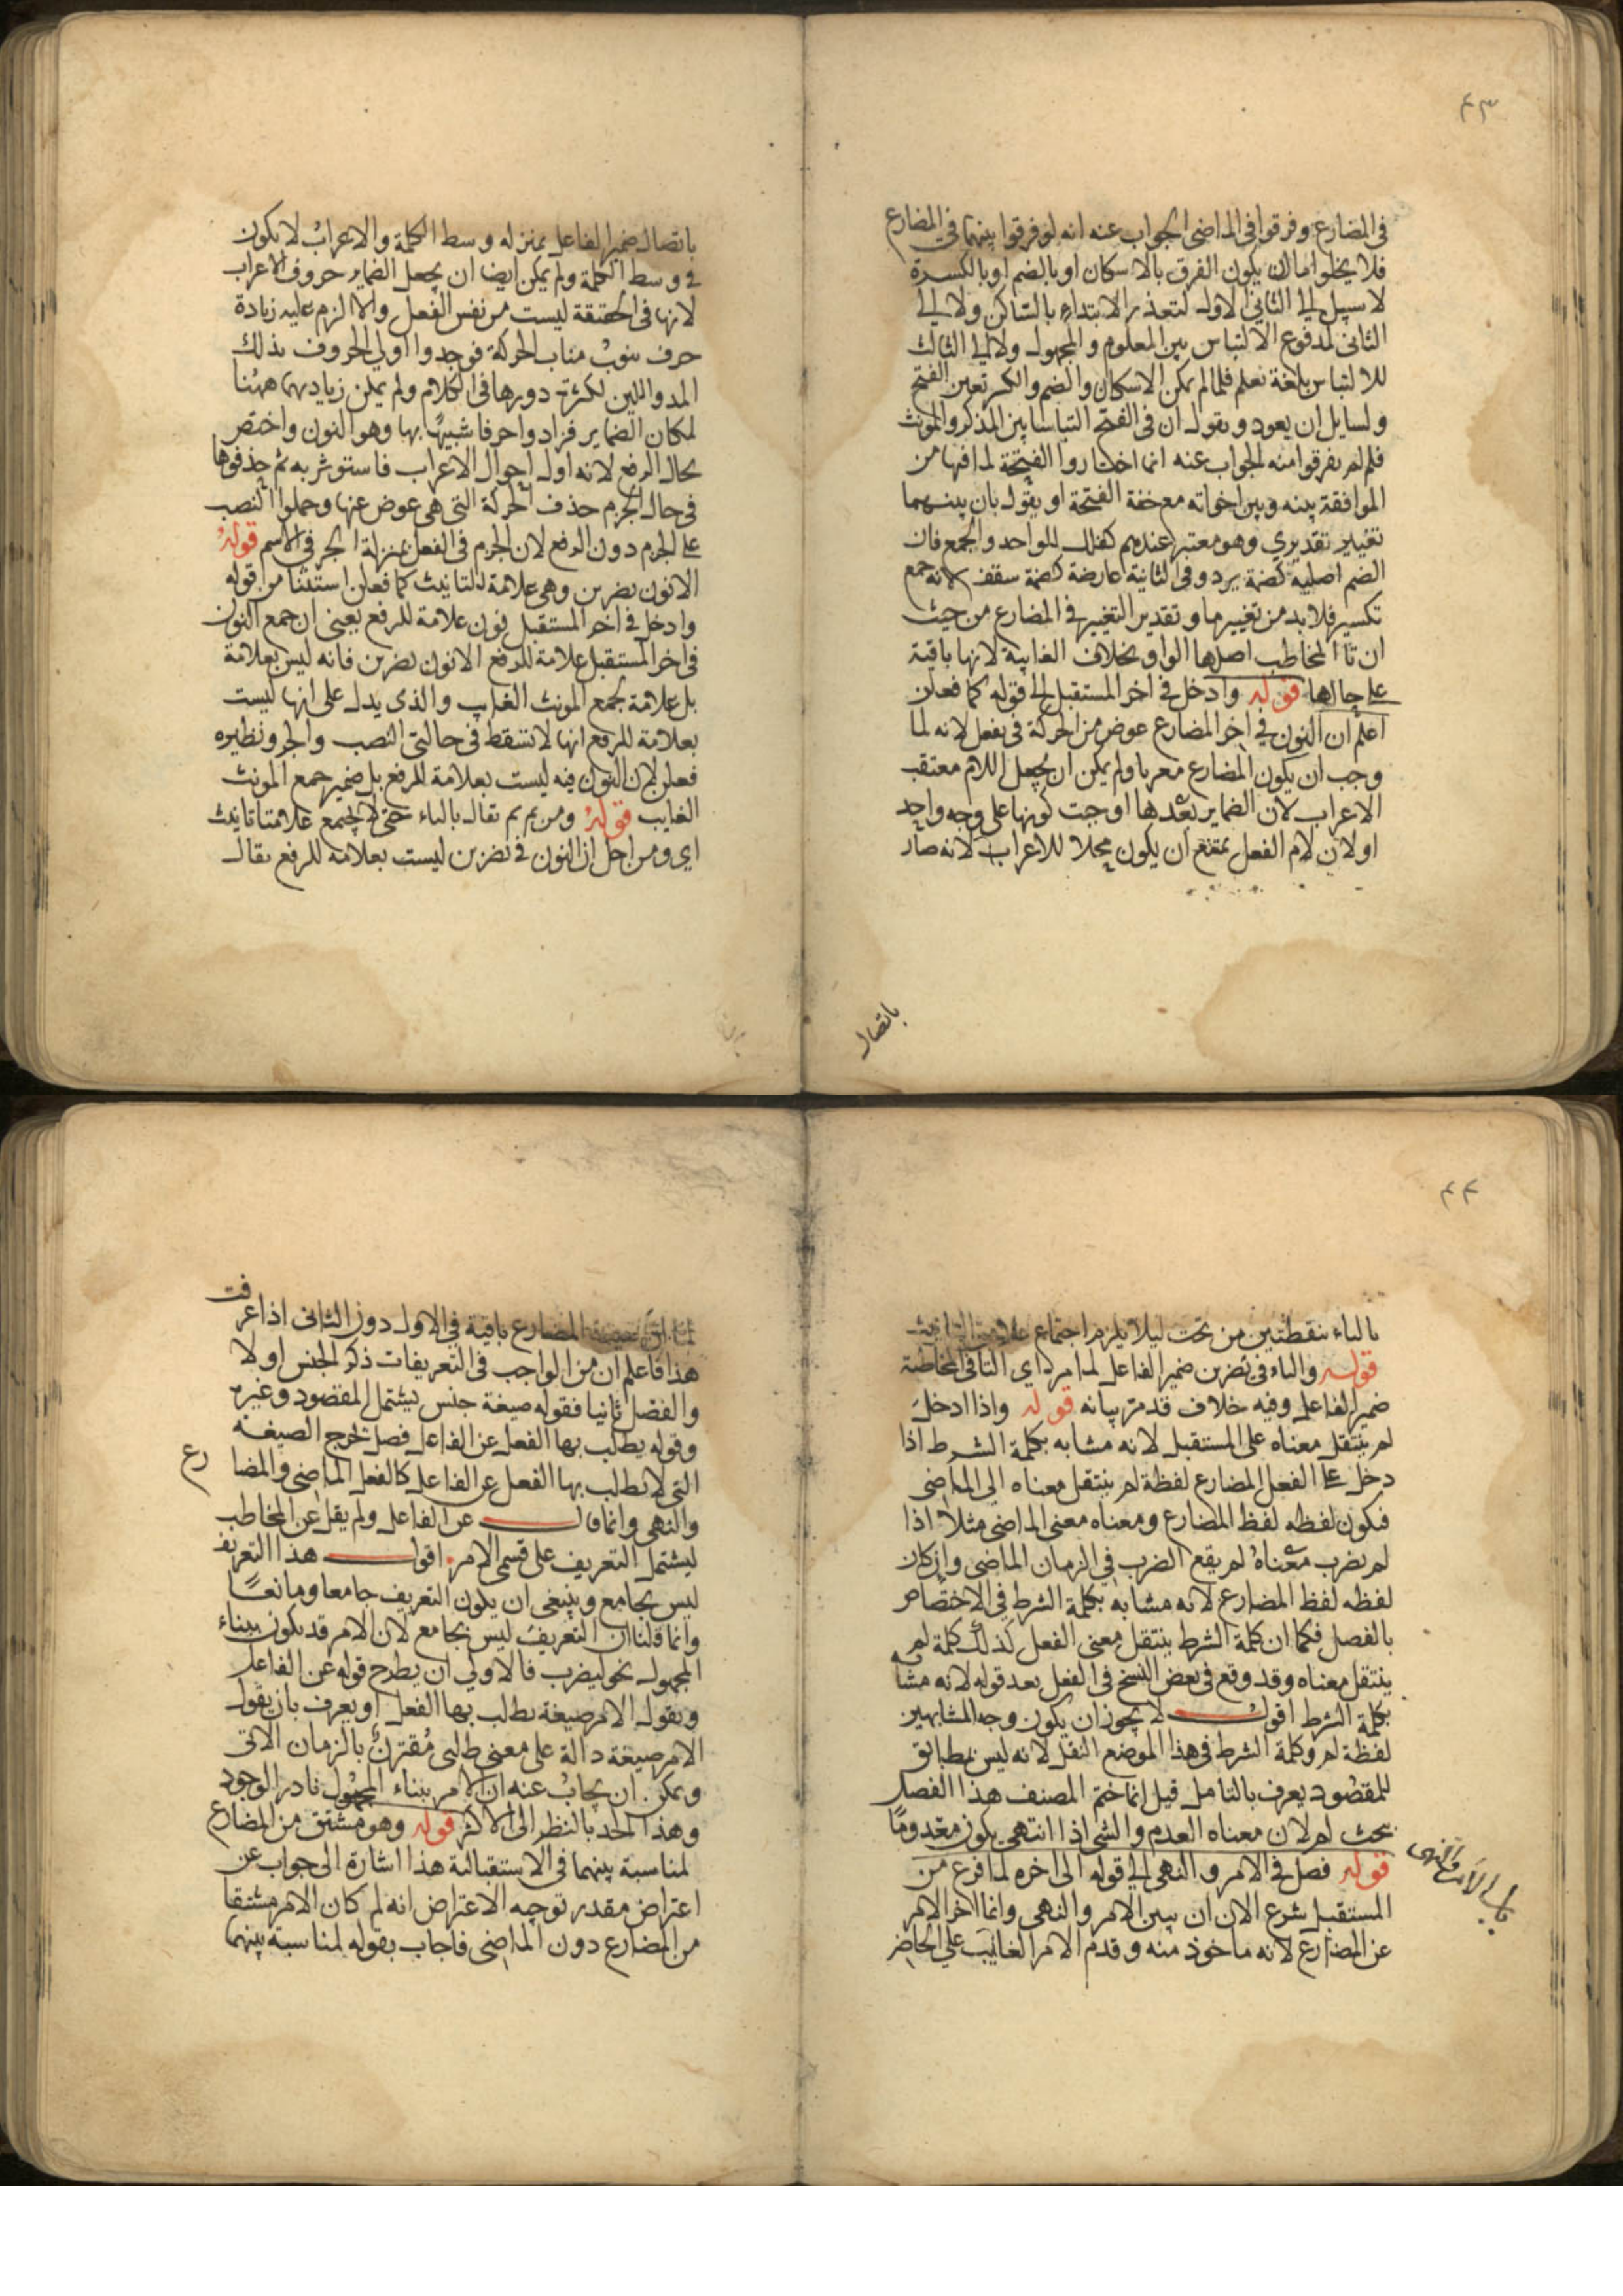 ٤٣
فى المضارع وفرقوا فى الماضى الجواب عنه انه لو فرقوا بينهما فى المضارع
فلا يخلوا ما ان يكون الفرق بالاسكان او بالضم او بالكسرة
لا سبيل الى الاول لتعذر الابتداء بالساكن ولا الى
الثانى لمدفوع الالتباس بين المعلوم والمجهول ولا الى الثالث
للالتباس بلغة تعلم فلما لم يمكن الاسكان والضم والكسر تعين الفتح
ولسايل ان يعود ويقول ان فى الفتح التباسا بين المذكر والمونث
فلم لم يفرقوا منه الجواب عنه انما اختاروا الفتحة لما فيها من
الموافقة بينه وبين اخواته مع خفة الفتحة او يقول بان بينهما
تغيير تقديري وهو معتبر عندهم كفلك للواحد والجمع فان
الضم اصلية كضمة برد وفى الثانية عارضة كضمة سقف لانه جمع
تكسير فلا بد من تغييرما وتقدير التغيير فى المضارع من حيث
ان تا المخاطب اصلها الواو بخلاف الغايبة لانها باقية
على حالها قوله وادخل فى اخر المستقبل الى قوله كما فعلن
اعلم ان النون في اخر المضارع عوض من الحركة فى يفعل لانه لما
وجب ان يكون المضارع معربا ولم يمكن ان يجعل اللام معتقب
الاعراب لان الضماير بعدها اوجبت كونها على وجه واحد
او لان لام الفعل يمتنع ان يكون محلا للاعراب لانه صار
باتصال
باتصال ضمير الفاعل بمنزله وسط الكلمة والاعراب لا يكون
فى وسط الكلمة ولم يمكن ايضا ان يجعل الضماير حروف الاعراب
لانها فى الحقيقة ليست من نفس الفعل والا الزم عليه زيادة
حرف ينوب مناب الحركة فوجدوا اولى الحروف بذلك
المد واللين لكثرة دورها فى الكلام ولم يمكن زيادتهما ههنا
لمكان الضماير فزادوا حرفا شبيها بها وهو النون واختص
بحال الرفع لانه اول احوال الاعراب فاستوثر به ثم حذفوها
فى حال الجزم حذف الحركة التى هى عوض عنها وحملوا النصب
على الجزم دون الرفع لان الجزم فى الفعل بمنزلة الجر فى الاسم قوله
الا نون يضربن وهى علامة للتانيث كما فعلن استثنا من قوله
وادخل فى اخر المستقبل نون علامة للرفع يعنى ان جمع النون
فى اخر المستقبل علامة للرفع الا نون يضربن فانه ليس بعلامة
بل علامة لجمع المونث الغايب والذى يدل على انها ليست
بعلامة للرفع انها لا تسقط فى حالتى النصب والجزم ونظيره
فعلن لان النون فيه ليست بعلامة للرفع بل ضمير جمع المونث
الغايب قوله ومن ثم يقال بالياء حتى لا يجتمع علامتا تانيث
اي ومن اجل ان النون فى يضربن ليست بعلامه للرفع يقال
٤٤
بالياء بنقطتين من تحت ليلا يلزم اجتماع علامتى التانيث
قوله والياء فى تضربن ضمير الفاعل لما مر اي التا فى المخاطبة
ضمير الفاعل وفيه خلاف قد مر بيانه قوله واذا ادخل
لم ينتقل معناه على المستقبل لانه مشابه بكلمة الشرط اذا
دخل على الفعل المضارع لفظة لم ينتقل معناه الى الماضى
فيكون لفظه لفظ المضارع ومعناه معنى الماضى مثلا اذا
لم يضرب معناه لم يقع الضرب في الزمان الماضى وان كان
لفظه لفظ المضارع لانه مشابه بكلمة الشرط فى الاختصاص
بالفصل فكما ان كلمة الشرط ينتقل معنى الفعل كذلك كلمة لم
ينتقل معناه وقد وقع فى بعض النسخ فى الفعل بعد قوله لانه مشابه
بكلمة الشرط اقول لا يجوز ان يكون وجه المشابهين
لفظة لم وكلمة الشرط فى هذا الموضع النقل لانه ليس بمطابق
للمقصود يعرف بالتامل قيل انما ختم المصنف هذا الفصل
بحث لم لان معناه العدم والشى اذا انتهى يكون معدوما
قوله فصل فى الامر والنهى الى قوله الى اخره لما فرغ من
المستقبل شرع الان ان يبين الامر والنهى وانما اخر الامر
عن المضارع لانه ماخوذ منه وقدم الامر الغايب على الحاضر
باب الامر والنهى
المضارع باقية فى الاول دون الثانى اذا عرفت
هذا فاعلم ان من الواجب فى التعريفات ذكر الجنس اولا
والفصل ثانيا فقوله صيغة جنس يشتمل المقصود وغيره
وقوله يطلب بها الفعل عن الفاعل فصل تخرج الصيغة
التى لا يطلب بها الفعل عن الفاعل كالفعل الماضى والمضارع
والنهى وانما قال عن الفاعل ولم يقل عن المخاطب
ليشتمل التعريف على قسمى الامر اقول هذا التعريف
ليس بجامع وينبغى ان يكون التعريف جامعا ومانعا
وانما قلنا ان التعريف ليس بجامع لان الامر قد يكون ببناء
المجهول نحو ليضرب فالاولى ان يطرح قوله عن الفاعل
ويقول الامر صيغة يطلب بها الفعل او يعرف بان يقول
الامر صيغة دالة على معنى طلبى مقترن بالزمان الاتى
ويمكن ان يجاب عنه ان الامر ببناء المجهول نادر الوجود
وهذا الحد بالنظر الى الاكثر قوله وهو مشتق من المضارع
لمناسبة بينهما فى الاستقبالية هذا اشارة الى جواب عن
اعتراض مقدر توجيه الاعتراض انه لم كان الامر مشتقا
من المضارع دون الماضى فاجاب بقوله لمناسبة بينهما